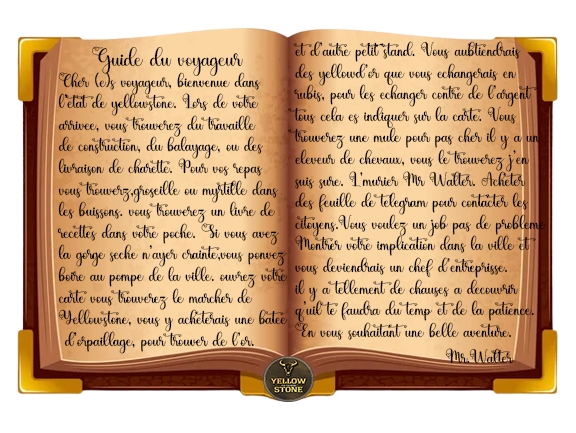 Guide du voyageur
Cher (e)s voyageur, bienvenue dans
l'etat de yellowstone. Lors de votre
arrivee, vous trouwerez du travaille
de construction, du balayage, ou des
livraison de charette. Pour vos repas
vous trouwerz,groseille ou myrtille dans
les buissons. vous trouwerez un livre de
recettes dans votre poche. Si vous avez
la gorge seche n'ayer crainte,vous pouvez
boire au pompe de la ville. ouvrez votre
carte vous trouwerez le marcher de
Yellowstone, vous y achèterais une batée
d'orpaillage, pour trouver de l'or.
et d'autre petit stand. Vous aubtiendrais
des yellowd'or que vous echangerais en
rubis, pour les echanger contre de l'argent
tous cela es indiquer sur la carte. Vous
trouwerez une mule pour pas cher il y a un
eleveur de chevaux, vous le trouwerez j'en
suis sure. L'murier Mr Walter. Acheter
des feuille de telegram pour contacter les
citoyens.Vous voulez un job pas de probleme
Montrer votre implication dans la ville et
vous deviendrais un chef d'entreprisse.
il y a tellement de chauses a decouvrir
qu'uil te faudra du temp et de la patience.
En vous souhaitant une belle aventure.
Mr.Walter
YELLOW
STONE